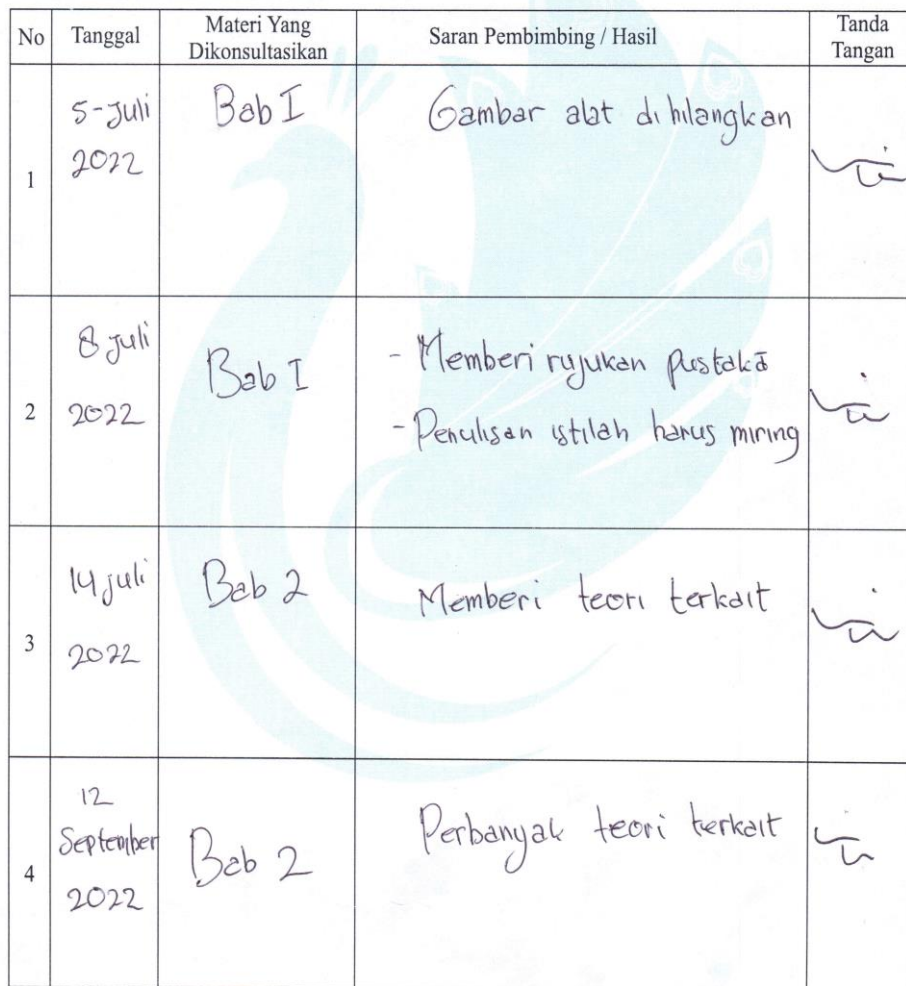 No Tanggal Materi Yang Dikonsultasikan Saran Pembimbing / Hasil Tanda Tangan
1
5-Juli
2022
Bab I
Gambar alat dihilangkan
2
8 Juli
2022
Bab I
- Memberi rujukan pustaka
- Penulisan istilah harus miring
3
14 juli
2022
Bab 2
Memberi teori terkait
4
12
September
2022
Bab 2
Perbanyak teori terkait